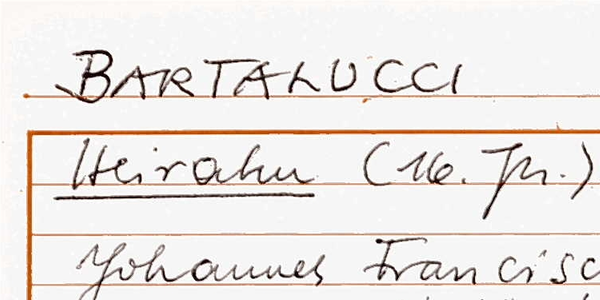 BARTALUCCI
Heirahn (16. Jh.)
Johannes Francisc